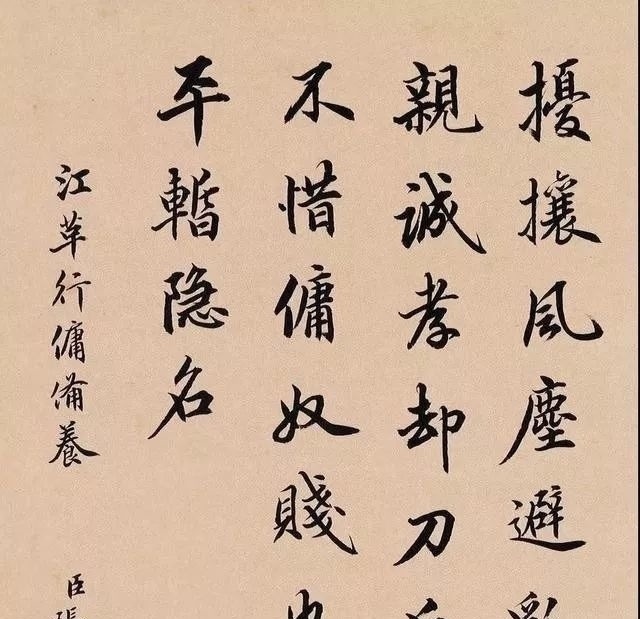 擾攘風塵避
親誠孝却刀
不惜傭奴賤
平暫隐名
江革行傭備養
臣張